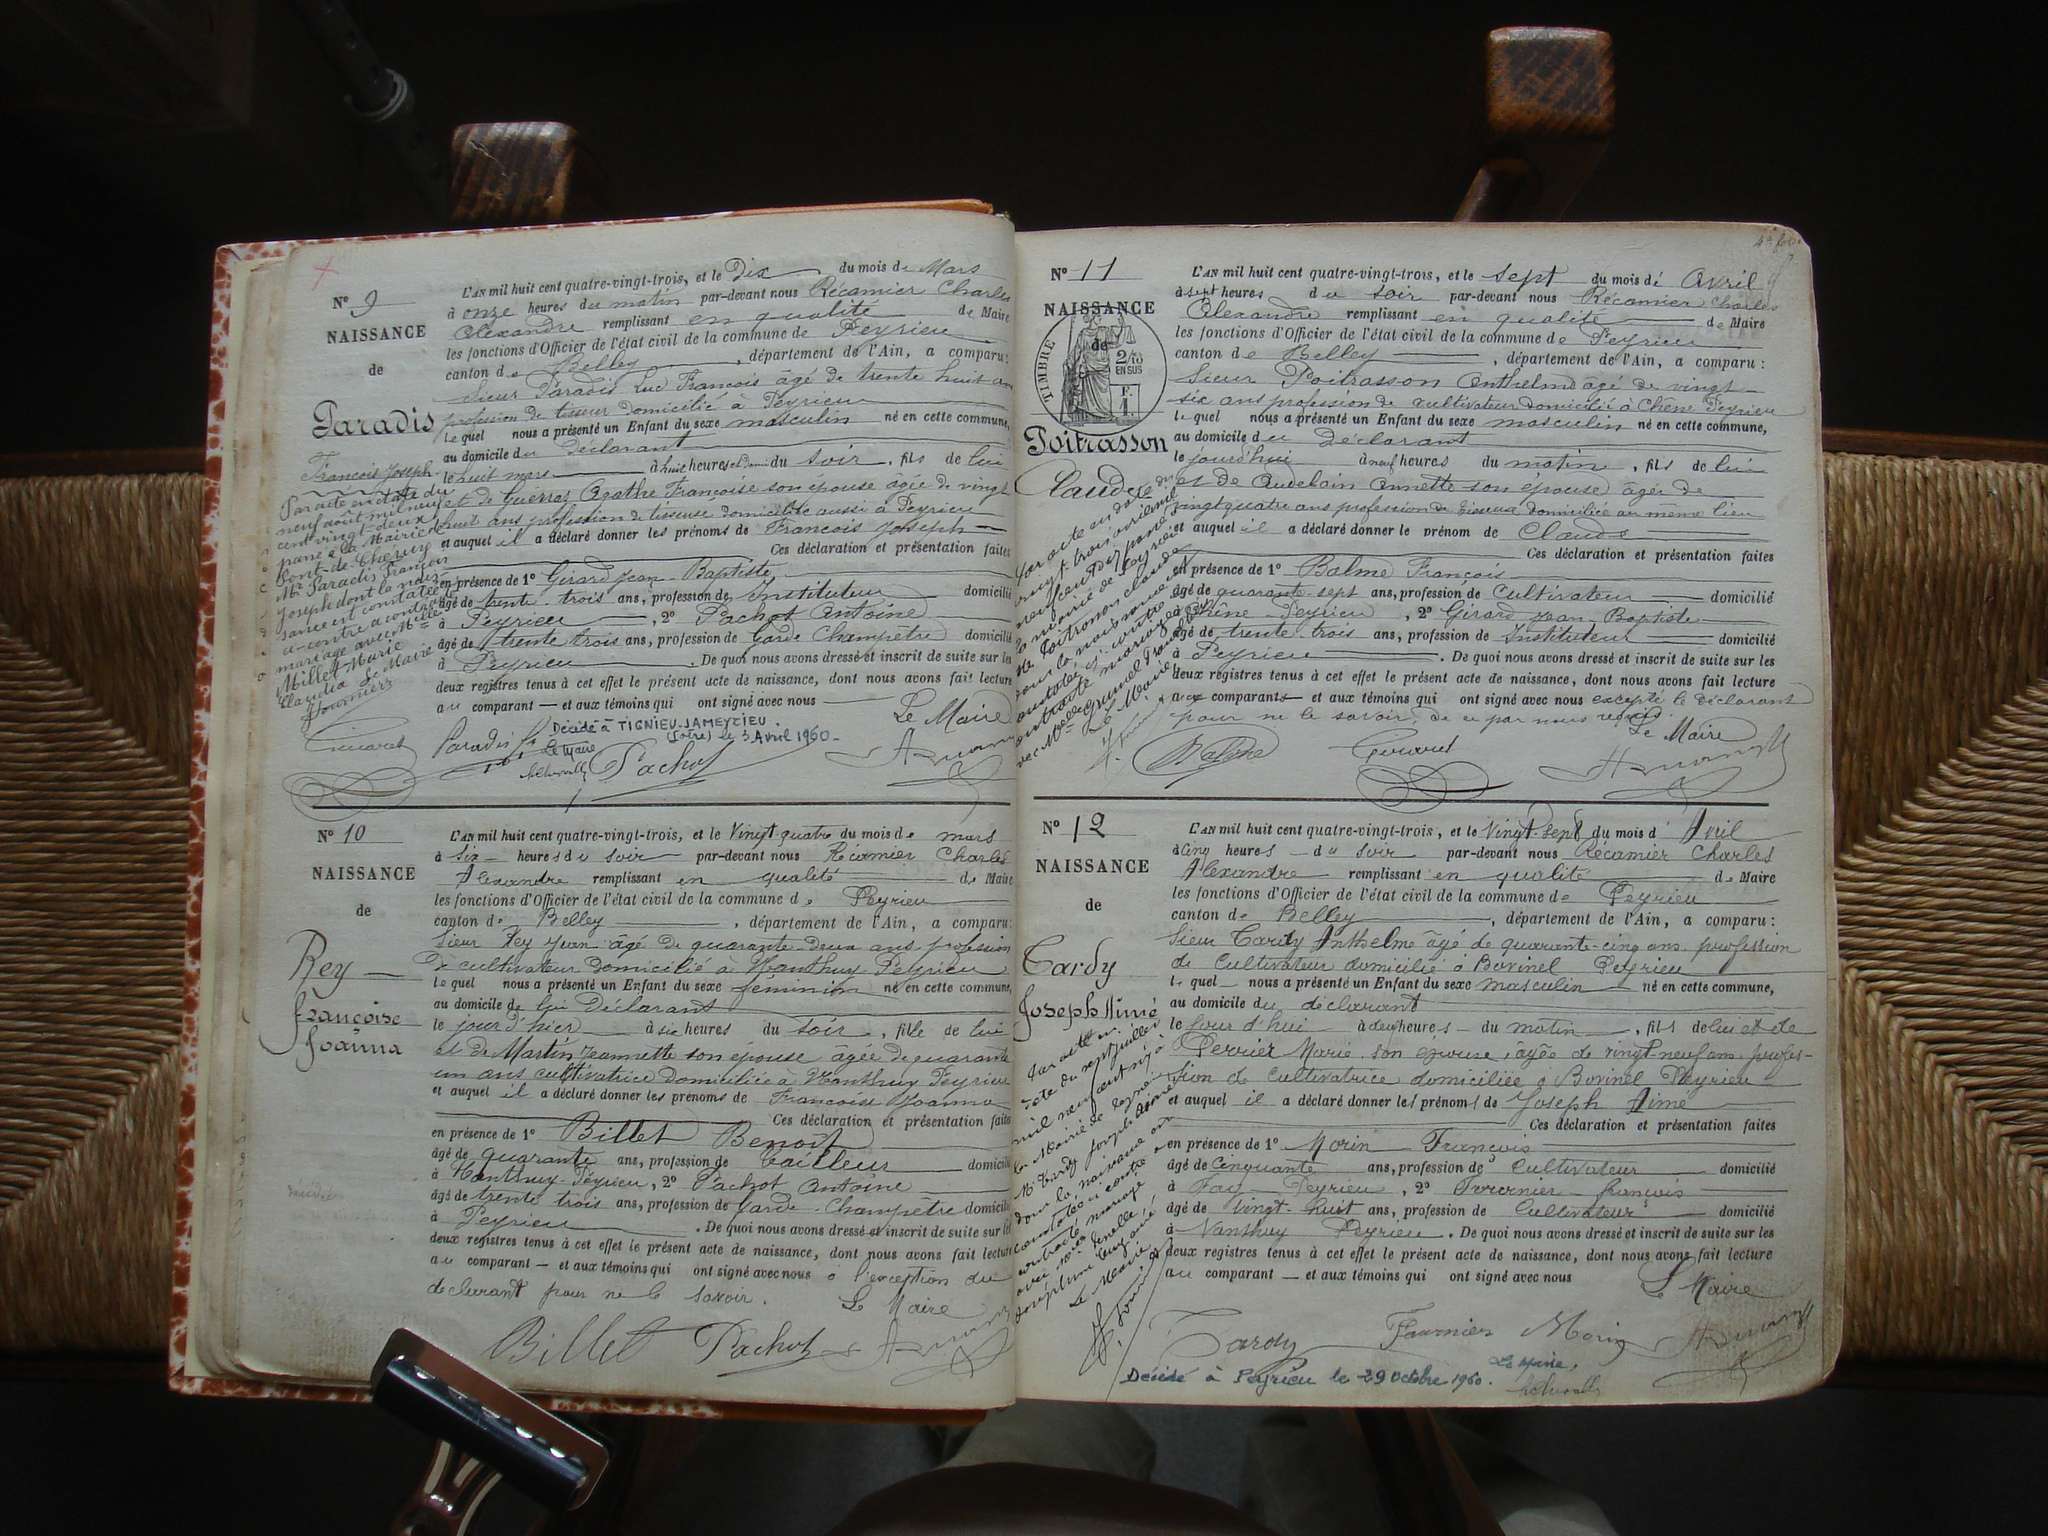 Nº 9
NAISSANCE
de
Paradis
François Joseph
Par acte en date du
neuf août mil neuf
cent vingt-deux
passé à la Mairie de
Pont-de-Cheruy
Mr Paradis François
Joseph dont la nais
sance est constatée
ci-contre a contracté
mariage avec Melle
Millet Marie
Claudia Le Maire
L'AN mil huit cent quatre-vingt-trois, et le Dix du mois de Mars
à onze heures du matin par-devant nous Récamier Charles
Alexandre remplissant en qualité de Maire
les fonctions d'Officier de l'état civil de la commune de Peyrieu
canton de Belley, département de l'Ain, a comparu:
Sieur Paradis Luc François âgé de trente huit ans
profession de tisseur domicilié à Peyrieu
lequel nous a présenté un Enfant du sexe masculin né en cette commune,
au domicile du Déclarant
le huit mars à huit heures et demi du soir, fils de lui
et de Guerraz Agathe Françoise son épouse agée de vingt
huit ans profession de tisseuse domiciliée aussi à Peyrieu
et auquel il a déclaré donner les prénoms de François Joseph
Ces déclaration et présentation faites
en présence de 1º Girard Jean Baptiste
âgé de trente-trois ans, profession de Instituteur domicilié
à Peyrieu, 2º Pachot Antoine
âgé de trente trois ans, profession de Garde Champêtre domicilié
à Peyrieu. De quoi nous avons dressé et inscrit de suite sur les
deux registres tenus à cet effet le présent acte de naissance, dont nous avons fait lecture
au comparant et aux témoins qui ont signé avec nous
Le Maire
Décédé à TIGNIEU-JAMEYZIEU
(Isère) le 3 Avril 1960.
Le Maire
Girard Paradis Pachot
Nº 10
NAISSANCE
de
Rey
Françoise
Joanna
L'AN mil huit cent quatre-vingt-trois, et le Vingt quatre du mois de mars
à six heures du soir par-devant nous Récamier Charles
Alexandre remplissant en qualité de Maire
les fonctions d'Officier de l'état civil de la commune de Peyrieu
canton de Belley, département de l'Ain, a comparu:
Sieur Rey Jean âgé de quarante-deux ans profession
de cultivateur domicilié à Nanthuy Peyrieu
lequel nous a présenté un Enfant du sexe féminin né en cette commune,
au domicile de lui Déclarant
le jour d'hier à six heures du soir, fille de lui
et de Martin Jeannette son épouse âgée de quarante
un ans cultivatrice domiciliée à Nanthuy Peyrieu
et auquel il a déclaré donner les prénoms de Françoise Joanna
Ces déclaration et présentation faites
en présence de 1º Billet Benoit
âgé de quarante ans, profession de Tailleur domicilié
à Nanthuy-Peyrieu, 2º Pachot Antoine
âgé de trente trois ans, profession de Garde-Champêtre domicilié
à Peyrieu. De quoi nous avons dressé et inscrit de suite sur les
deux registres tenus à cet effet le présent acte de naissance, dont nous avons fait lecture
au comparant et aux témoins qui ont signé avec nous à l'exception du
déclarant pour ne le savoir. Le Maire
Billet Pachot
Nº 11
NAISSANCE
de
TIMBRE
2/10
EN SUS
F.
1
Poitrasson
Claude
L'AN mil huit cent quatre-vingt-trois, et le sept du mois de Avril
à sept heures du soir par-devant nous Récamier Charles
Alexandre remplissant en qualité de Maire
les fonctions d'Officier de l'état civil de la commune de Peyrieu
canton de Belley, département de l'Ain, a comparu:
Sieur Poitrasson Anthelme âgé de vingt
six ans profession de cultivateur domicilié à Chêne Peyrieu
lequel nous a présenté un Enfant du sexe masculin né en cette commune,
au domicile du Déclarant
le jourd'hui à neuf heures du matin, fils de lui
et de Annette son épouse âgée de
vingt quatre ans profession de tisseuse domiciliée au même lieu
et auquel il a déclaré donner le prénom de Claude
Ces déclaration et présentation faites
en présence de 1º Balme François
âgé de quarante-sept ans, profession de Cultivateur domicilié
à Chêne Peyrieu, 2º Girard Jean Baptiste
âgé de trente trois ans, profession de Instituteur domicilié
à Peyrieu. De quoi nous avons dressé et inscrit de suite sur les
deux registres tenus à cet effet le présent acte de naissance, dont nous avons fait lecture
aux comparants et aux témoins qui ont signé avec nous excepté le déclarant
pour ne le savoir de ce par nous requis.
Le Maire
Balme Girard
Nº 12
NAISSANCE
de
Tardy
Joseph Aimé
Par acte en
date du sept juillet
mil neuf cent
la Mairie de
Mr Tardy Joseph Aimé
dont la naissance est
constatée ci contre a
contracté mariage
avec Melle
Joséphine
Le Maire
L'AN mil huit cent quatre-vingt-trois, et le Vingt-sept du mois d'Avril
à cinq heures du soir par-devant nous Récamier Charles
Alexandre remplissant en qualité de Maire
les fonctions d'Officier de l'état civil de la commune de Peyrieu
canton de Belley, département de l'Ain, a comparu:
Sieur Tardy Anthelme âgé de quarante-cinq ans profession
de cultivateur domicilié à Bovinel Peyrieu
lequel nous a présenté un Enfant du sexe masculin né en cette commune,
au domicile du déclarant
le jour d'hui à deux heures du matin, fils de lui et de
Perrier Marie son épouse, âgée de vingt-neuf ans profes-
sion de cultivatrice domiciliée à Bovinel Peyrieu
et auquel il a déclaré donner les prénoms de Joseph Aimé
Ces déclaration et présentation faites
en présence de 1º Morin François
âgé de Cinquante ans, profession de Cultivateur domicilié
à Fay-Peyrieu, 2º Fournier François
âgé de Vingt-huit ans, profession de Cultivateur domicilié
à Nanthuy Peyrieu. De quoi nous avons dressé et inscrit de suite sur les
deux registres tenus à cet effet le présent acte de naissance, dont nous avons fait lecture
au comparant et aux témoins qui ont signé avec nous
Le Maire
Tardy Fournier Morin
Décédé à Peyrieu le 29 Octobre 1960. Le Maire,